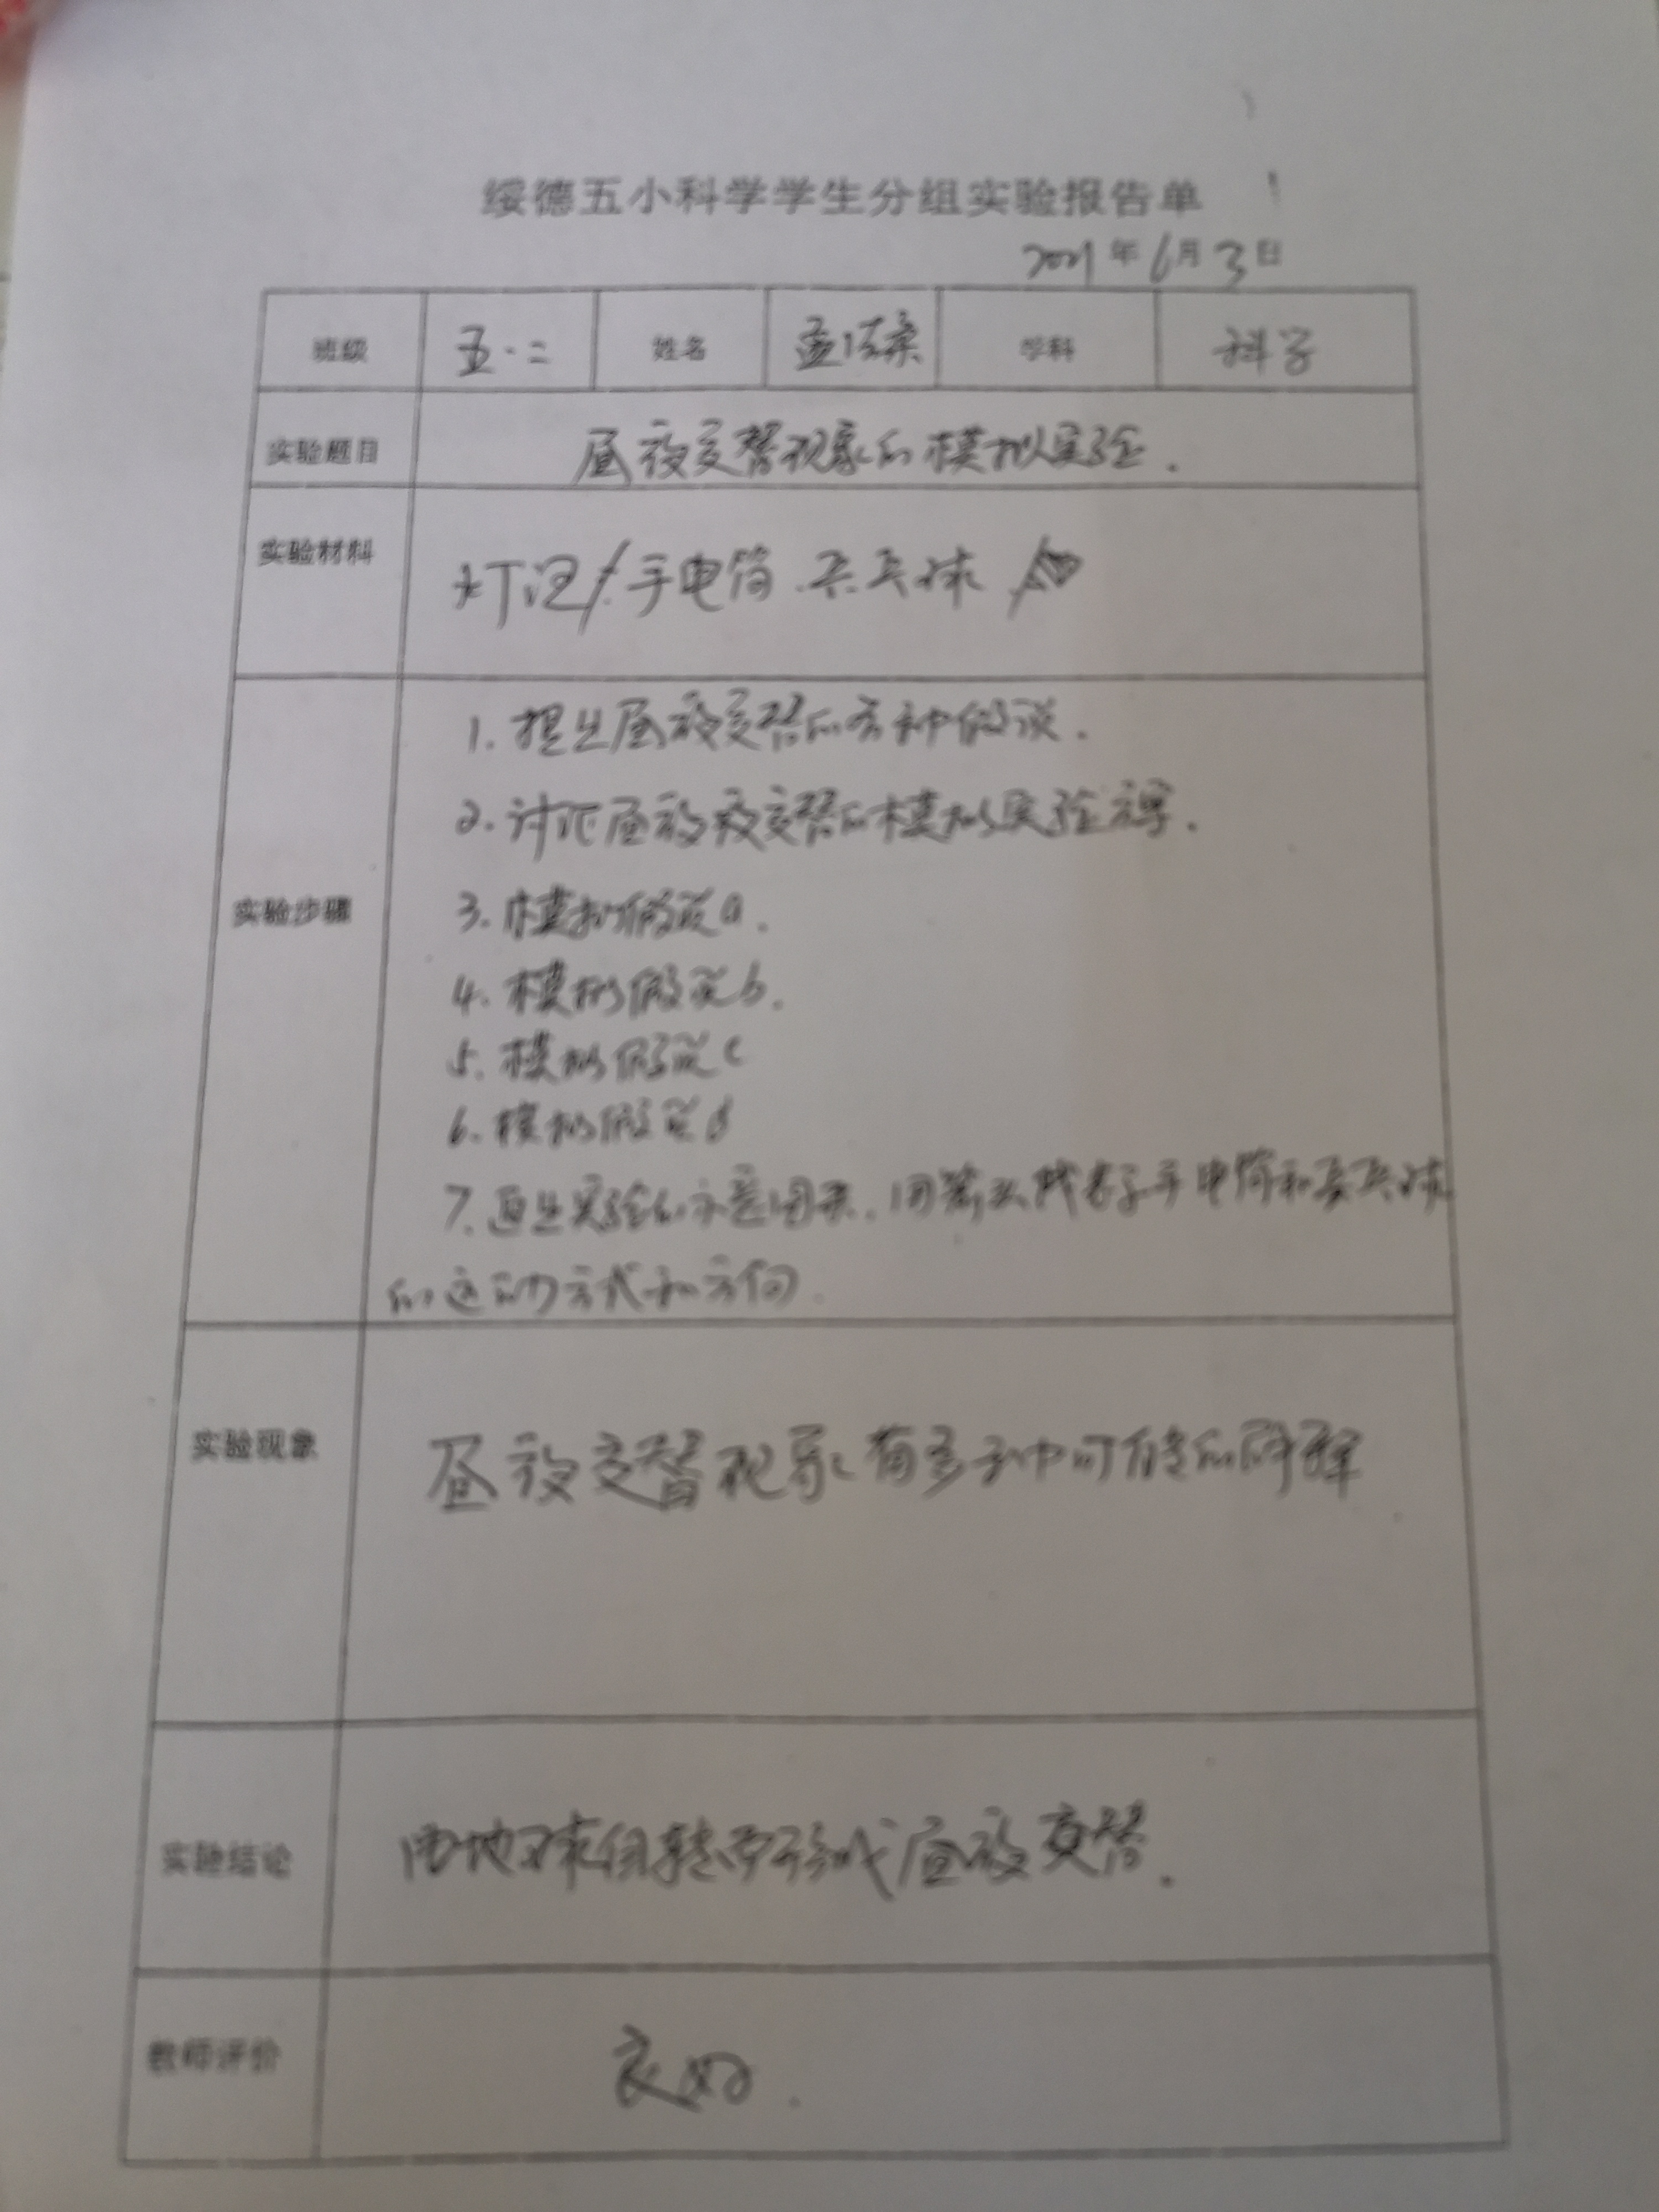 绥德五小科学学生分组实验报告单
2021年6月3日
班级 五·二 姓名 孟 学科 科学
实验题目 昼夜交替现象的模拟实验.
实验材料 灯泡/手电筒.乒乓球
1. 提出昼夜交替的各种假说.
2. 讨论昼夜交替的模拟实验.
实验步骤 3. 模拟假说a.
4. 模拟假说b.
5. 模拟假说c
6. 模拟假说d
7. 画出实验的示意图来.用箭头代表手电筒和乒乓球
的运动方式和方向.
实验现象 昼夜交替现象有多种可能的解释
实验结论 由地球自转而形成昼夜交替.
教师评价 良好.